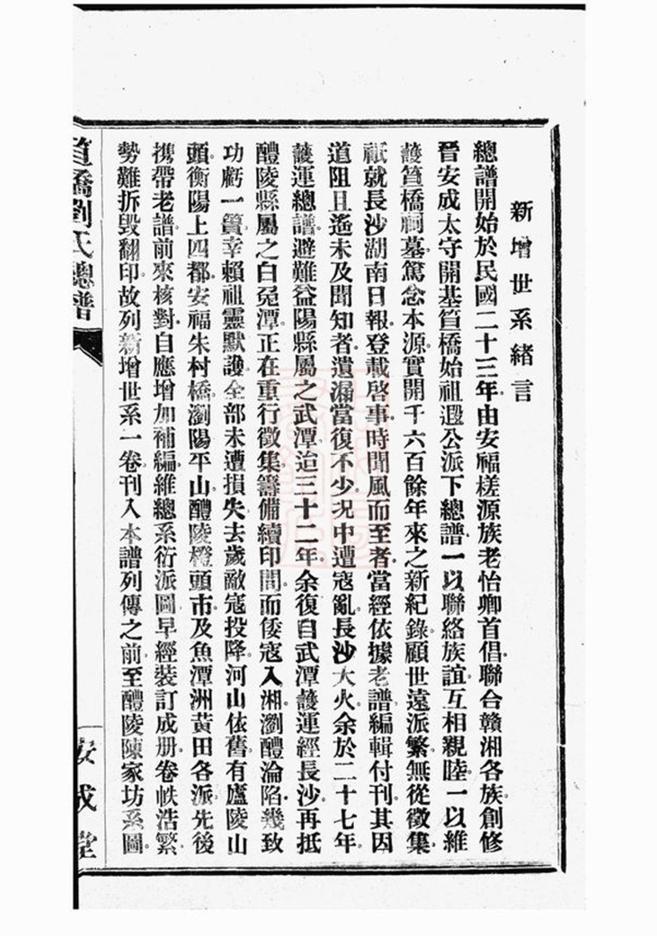 新增世系緒言
總譜開始於民國二十三年由安福槎源族老怡卿首倡聯合贛湘各族創修
晉安成太守開基笪橋始祖遐公派下總譜一以聯絡族誼互相親睦一以維
護笪橋祠墓篤念本源實開千六百餘年來之新紀錄顧世遠派繁無從徵集
祇就長沙湖南日報登載啓事時聞風而至者當經依據老譜編輯付刊其因
道阻且遙未及聞知者遺漏當復不少况中遭寇亂長沙大火余於二十七年
護運總譜避難益陽縣屬之武潭迨三十二年余復自武潭護運經長沙再抵
醴陵縣屬之白兎潭正在重行徵集籌備續印間而倭寇入湘瀏醴淪陷幾致
功虧一簣幸賴祖靈默護全部未遭損失去歲敵寇投降河山依舊有廬陵山
頭衡陽上四都安福朱村橋瀏陽平山醴陵橙頭市及魚潭洲黃田各派先後
携帶老譜前來核對自應增加補編維總系衍派圖早經裝訂成册卷帙浩繁
勢難拆毀翻印故列新增世系一卷刊入本譜列傳之前至醴陵陳家坊系圖
笪橋劉氏總譜
安成堂